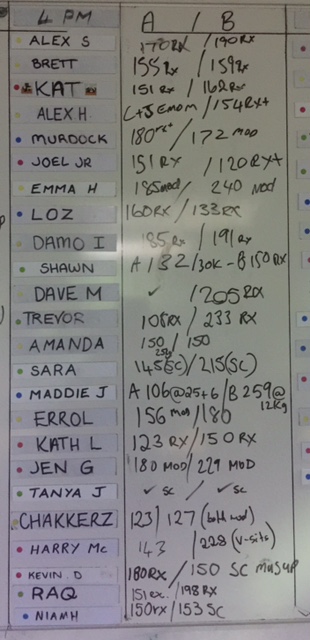 4 PM A / B
ALEX S 170RX / 190RX
BRETT 155RX / 159RX
KAT 151 RX / 162RX
ALEX H C+J EMOM / 154RX+
MURDOCK 180rx+ / 172 MOD
JOEL JR 151 RX / 120RX+
EMMA H 185mod / 240 Mod
LOZ 160RX / 133RX
DAMO I 185RX / 191RX
SHAWN A / 32 / 30K - B 150 RX
DAVE M ✓ / 205RX
TREVOR RX / 233 RX
AMANDA 150 / 150
SARA 145(SC) / 215(SC)
MADDIE J A 106@25+6 / B 259@12Kg
ERROL 156 mod / 180
KATH L 123 RX / 150RX
JEN G 180 MOD / 229 MOD
TANYA J ✓ SC / ✓ SC
CHAKKERZ 123 / 127 (both mod)
HARRY Mc 143 / 228 (V-sits)
KEVIN.D 180RX / 150 SC
RAQ 151 rx / 198RX
NIAMH 150rx / 153 SC